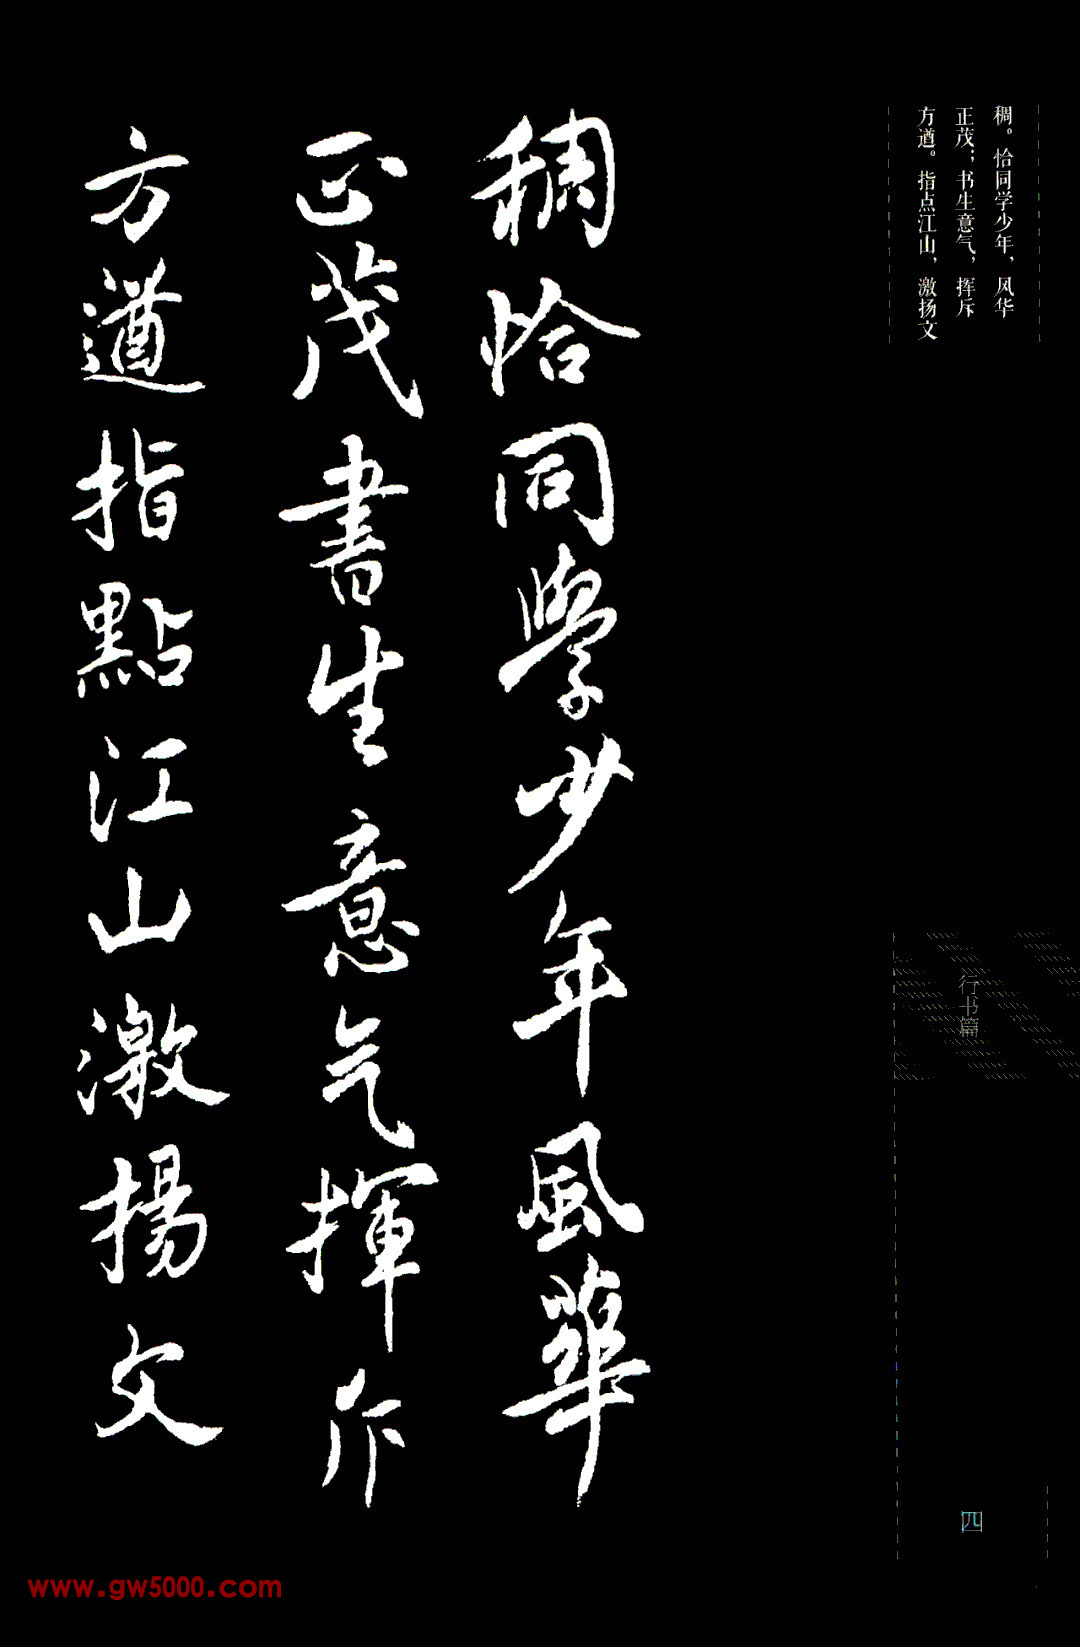 稠。恰同学少年，风华
正茂；书生意气，挥斥
方遒。指点江山，激扬文
稠恰同學少年風華
正茂書生意气揮斥
方遒指點江山激揚文
行书篇
四
www.gw5000.com